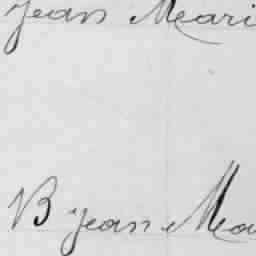 Jean Mari
B Jean Ma